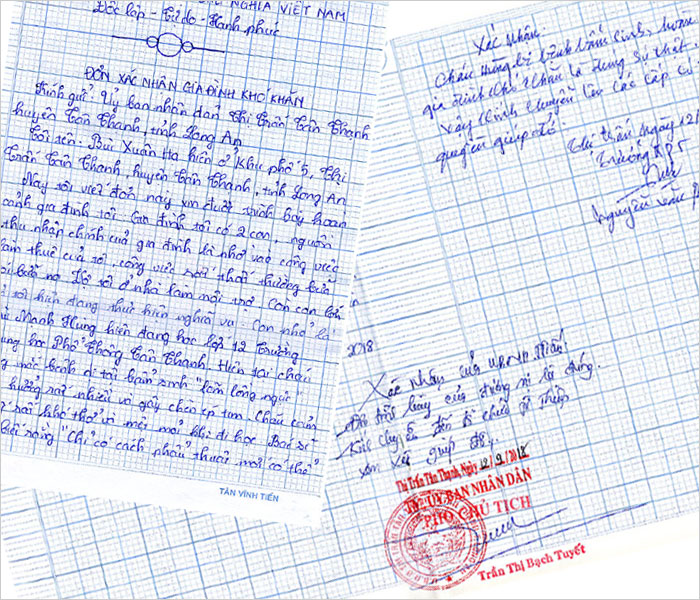 NGHĨA VIỆT NAM
Độc lập - Tự do - Hạnh phúc
ĐƠN XÁC NHẬN GIA ĐÌNH KHÓ KHĂN
Kính gửi Ủy ban nhân dân Thị Trấn Tân Thạnh
huyện Tân Thạnh, tỉnh Long An
Tôi tên: Bùi Xuân Hạ hiện ở Khu phố 5, Thị
Trấn Tân Thạnh, huyện Tân Thạnh, tỉnh Long An
Nay tôi viết đơn này xin được trình bày hoàn
cảnh gia đình tôi. Gia đình tôi có 2 con, nguồn
thu nhập chính của gia đình là nhờ vào công việc
làm thuê của tôi, công việc thất thường bữa
Vợ tôi ở nhà làm nội trợ. Con lớn
tôi hiện đang thực hiện nghĩa vụ. Con nhỏ là
Mạnh Hùng hiện đang học lớp 12 Trường
Trung học Phổ Thông Tân Thạnh. Hiện tại cháu
mắc bệnh dị tật bẩm sinh "lõm lồng ngực"
hưởng rất nhiều và gây chèn ép tim. Cháu cảm
khó thở và mệt mỏi khi đi học. Bác sĩ
rằng "Chỉ có cách phẫu thuật mới có thể"
TÂN VĨNH TIẾN
Xác Nhận.
Cháu Hùng bị bệnh bẩm sinh, hoàn
gia đình khó khăn là đúng sự thật
Vậy kính chuyển lên các cấp
quyền giúp đỡ.
Thị trấn ngày 12/
Trưởng KP5
Nguyễn Văn
2018
Xác nhận của UBND
trình bày của đương sự là đúng.
Kính chuyển đến
xem xét giúp đỡ.
Thị Trấn Tân Thạnh, Ngày 12/9/2018
TM. ỦY BAN NHÂN DÂN
PHÓ CHỦ TỊCH
Trần Thị Bạch Tuyết